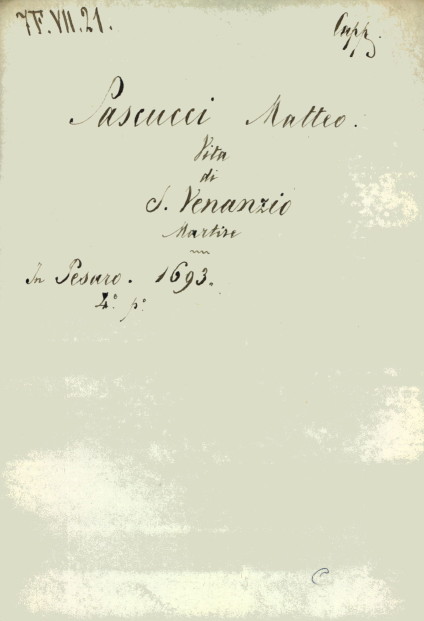 7F.VII.21.
Capp.
Pascucci Matteo.
Vita
di
S. Venanzio
Martire
In Pesaro. 1693.
4.° p.°